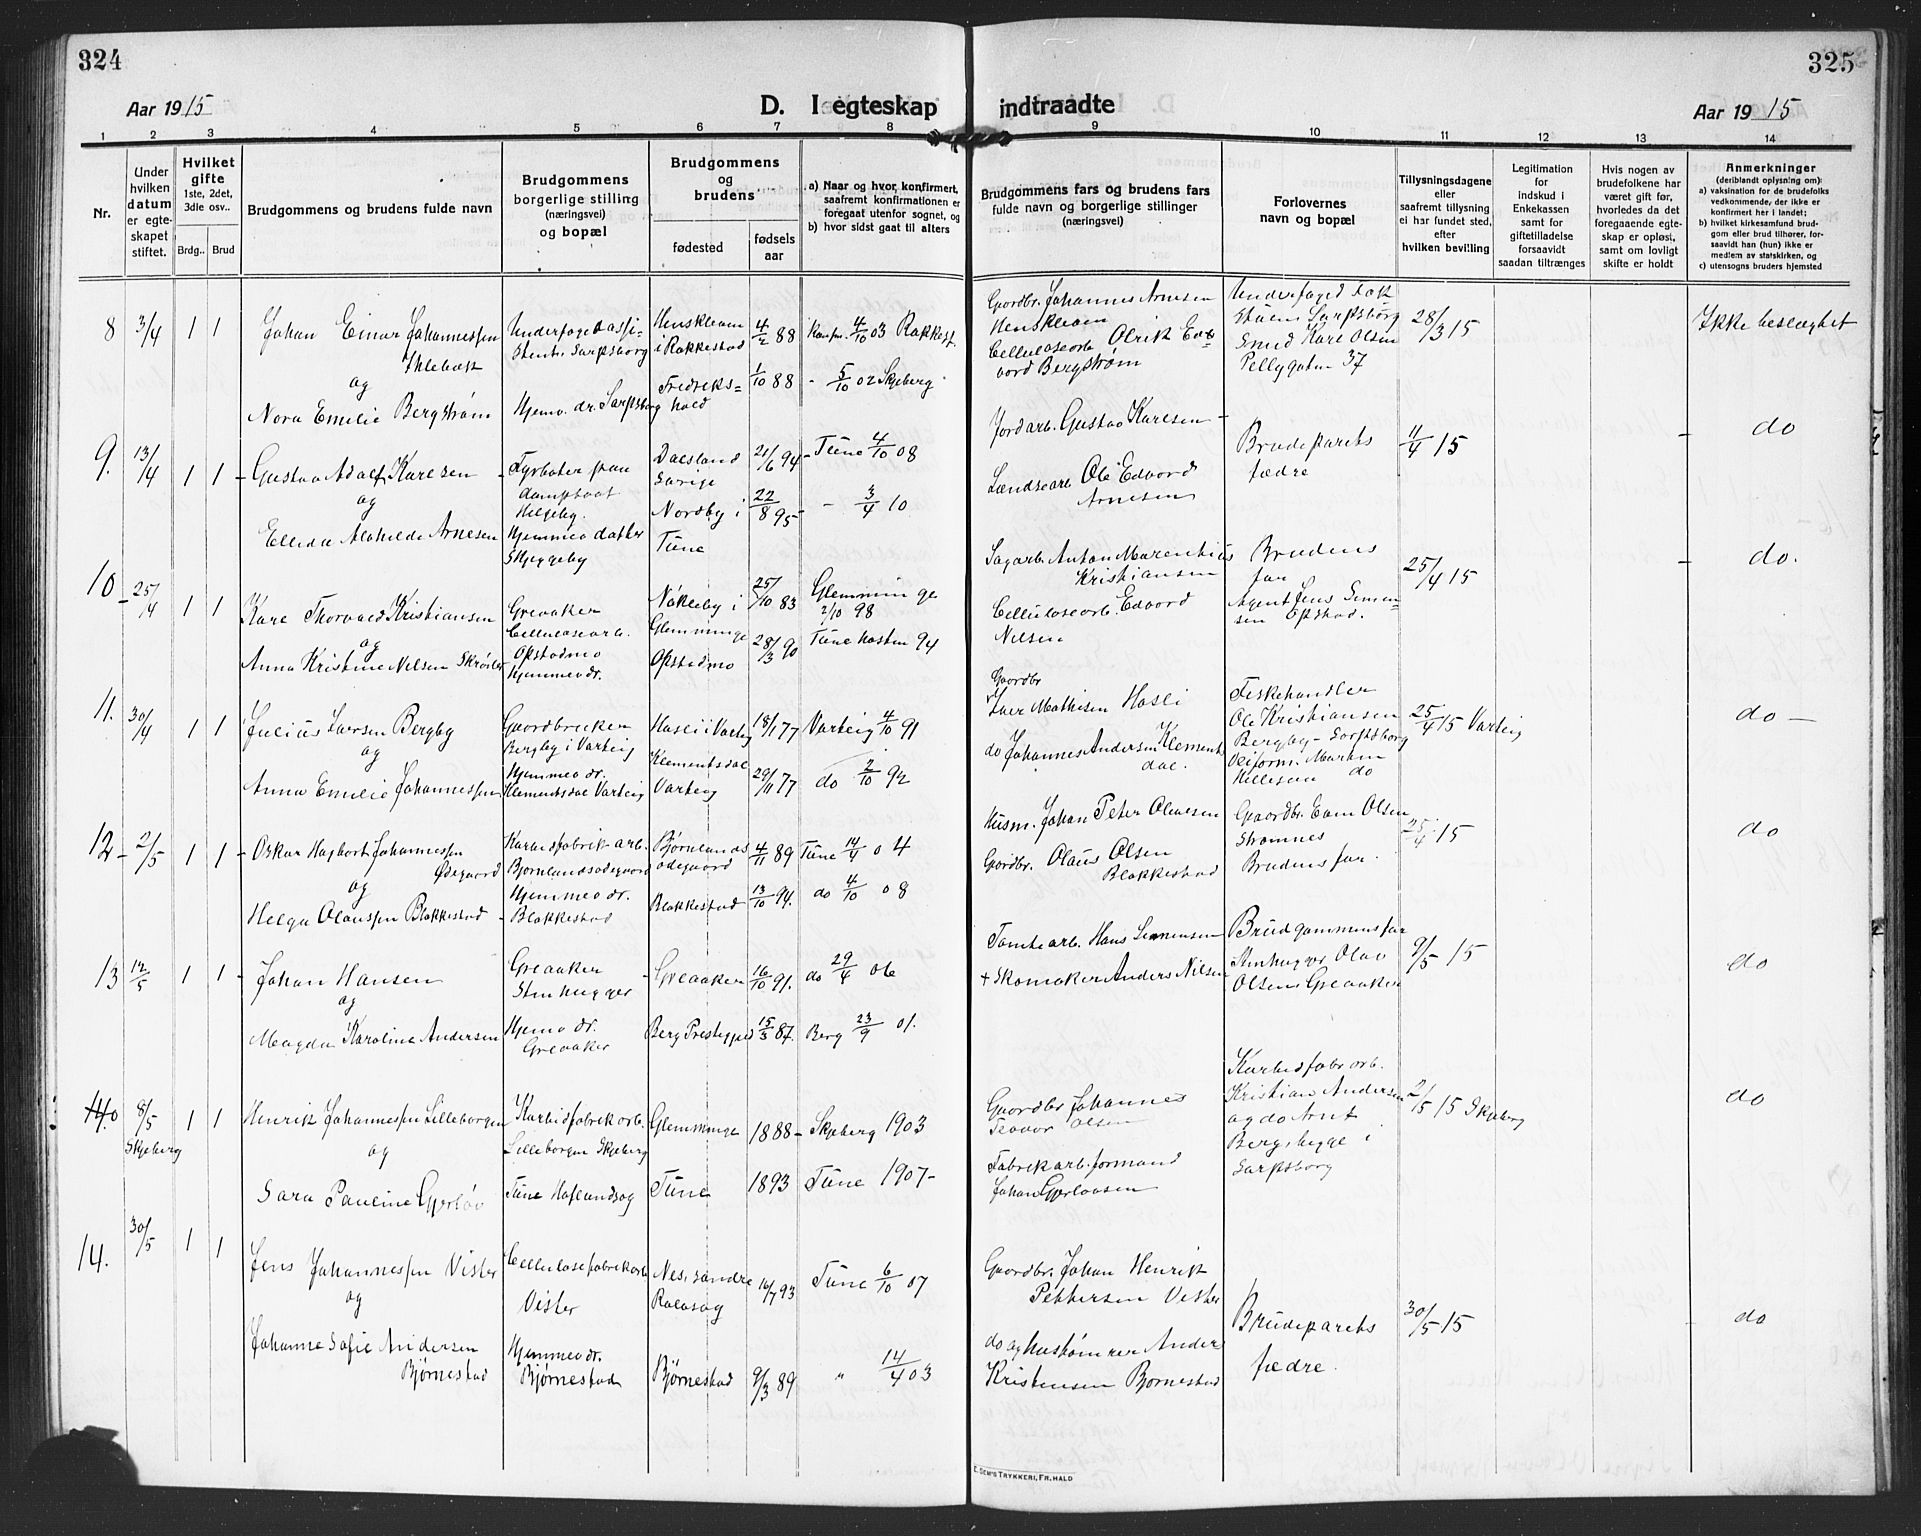 324
Aar 1915
D. I egteskap
1 2 3 4 5 6 7 8
Nr.
Under hvilken datum er egteskapet stiftet.
Hvilket gifte 1ste, 2det, 3dle osv..
Brdg.. Brud
Brudgommens og brudens fulde navn
Brudgommens borgerlige stilling (næringsvei) og bopæl
Brudgommens og brudens
fødested
fødsels aar
a) Naar og hvor konfirmert, saafremt konfirmationen er foregaat utenfor sognet, og
b) hvor sidst gaat til alters
8 3/4 1 1 Johan Einar Johannessen
og
Nora Emilie Bergstrøm
Sarpsborg
i Rakkestad
4/2 88
Konfm. 4/10 03 Rakkest.
Hjemv. dr. Sarpsborg
Fredrikshald
1/10 88
- 5/10 02 Skjeberg
9. 13/4 1 1 - Gustav Adolf Karlsen
og
Fyrbøter paa
Helgeby.
Dalsland
21/6 94
- Tune 4/10 08
Arnesen
Hjemmev datter
Skjeggeby
Nordby i
Tune
22/8 95
- 3/4 10
10 25/4 1 1 Kristiansen
og
Anna Kristine Nilsen
Greaaker
Cellulosearb.
Opstadmo
Hjemmev dr.
i
Glemminge
25/10 83
Glemminge
2/10 98
Opstadmo
28/3 90
Tune høsten 94
11. 30/4 1 1 Julius Larsen Bergby
og
Anna Emilie Johannessen
Gaardbruker
Bergby i Varteig
Hjemmev dr.
Klementsdal Varteig
Hasli i Varteig
18/1 77
Varteig 4/10 91
Klementsdal
Varteig
29/11 77
do 2/10 92
12 - 2/5 1 1 - Oskar Hagbart Johannessen
Ødegaard
og
Helga Olaussen Blakkestad
Karbidfabrik arb.
Bjørnlandsødegaard
Hjemmev dr.
Blakkestad
Bjørnlands
ødegaard
4/11 89
Tune 14/4 04
Blakkestad
13/10 94.
do 4/10 08
13 12/5 1 1 - Johan Hansen
og
Magda Karoline Andersen
Greaaker
Stenhugger
Hjemv dr.
Greaaker
- Greaaker
16/10 91.
do 29/4 06
Berg Prestegjeld
15/3 87.
Berg 23/9 01.
8/5
Skjeberg
1 1
Henrik Johannessen Lilleborgen
og
Sara Pauline Gjerløv
Karbidfabrikarb.
Lilleborgen Skjeberg
Tune Haflundsøg
Glemminge
1888 -
Skjeberg 1903
Tune
1893
Tune 1907 -
14. 30/5 1 1
Jens Johannessen Vister
og
Johanne Sofie Andersen
Bjørnestad
Cellulosefabrikarb
Vister
Hjemmev dr.
Bjørnestad
Nes, søndre
16/7 93
Tune 6/10 07
Bjørnestad
9/3 89
" 14/4 03
325
indtraadte
Aar 1915
9 10 11 12 13 14
Brudgommens fars og brudens fars fulde navn og borgerlige stillinger (næringsvei)
Forlovernes navn og bopæl
Tillysningsdagene eller saafremt tillysning ei har fundet sted, efter hvilken bevilling
Legitimation for indskud i Enkekassen samt for giftetilladelse forsaavidt saadan tiltrænges
Hvis nogen av brudefolkene har været gift før, hvorledes da det foregaaende egteskap er opløst, samt om lovligt skifte er holdt
Anmerkninger
(deriblandt oplysning om):
a) vaksination for de brudefolks vedkommende, der ikke er konfirmert her i landet;
b) hvilket kirkesamfund brudgom eller brud tilhører, forsaavidt han (hun) ikke er medlem av statskirken, og
c) utensogns bruders hjemsted
Gaardbr. Johannes Arnesen
Cellulosearb Olrik Edvard
Bergstrøm
Sarpsborg
Smed Karl Olsen
Pellygaten 37
28/3 15
Ikke beslægtet
Jordarb. Gustav Karlsen -
Ole Edvard
Arnesen
Brudeparets
fædre
11/4 15
- do
Sagarb. Anton Marentius
Kristiansen
Cellulosearb. Edvard
Nilsen
Brudens
far
Agent Jens Simensen
Opstad.
25/4 15
- do.
Gaardbr
Iver Mathisen Hasli
do Johannes Andersen Klementsdal.
Fiskehandler
Ole Kristiansen
Bergby - Sarpsborg
Veiform. Martin
do
25/4 15 Varteig
do -
Husm. Johan Peter Olausen
Gaardbr. Olaus Olsen
Blakkestad
Gaardbr. Even Olsen
Strømnes
Brudens far.
25/4 15
do
Tomtearb. Hans Simensen
+ Skomaker Anders Nilsen
Brudgommens far
Stenhugger Olav
Olsen Greaaker
9/5 15
do
Gaardbr Johannes
Olsen
Fabrikarb.formand
Johan Gjerløvsen
Karbidfabr arb.
Kristian Andersen
og do Arnt
Bergsbygge i
Sarpsborg
2/5 15 Skjeberg
do
Gaardbr. Johan Henrik
Pettersen Vister
do og hustømrer Anders
Kristensen Bjørnestad
Brudeparets
fædre.
30/5 15
do
E. SEM'S TRYKKERI, FR.HALD